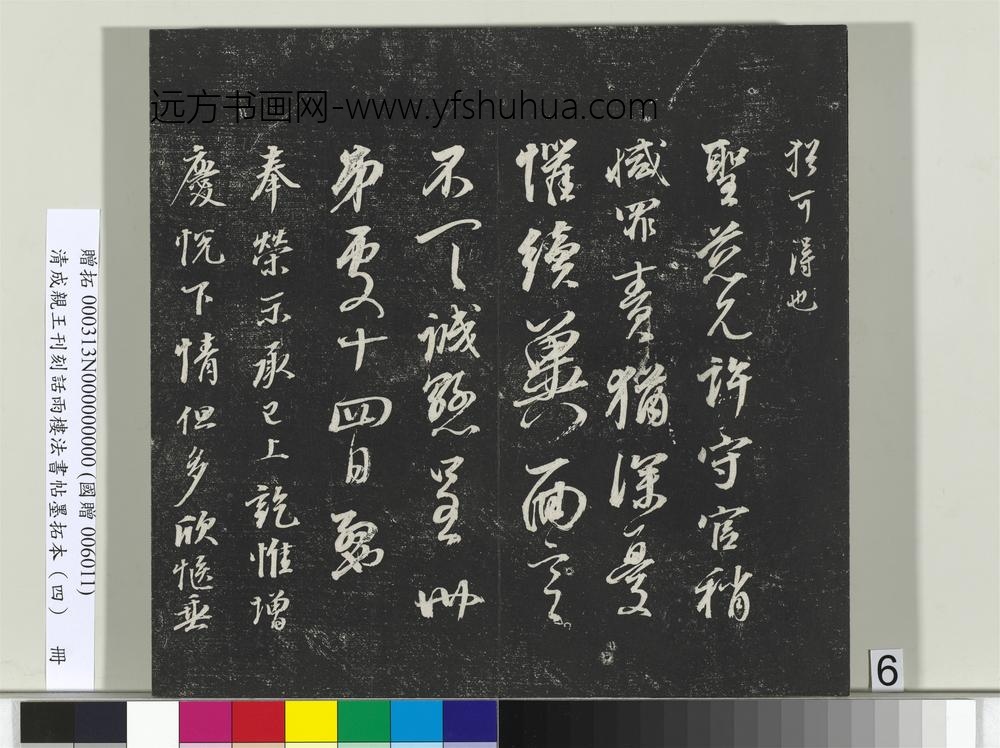 远方书画网-www.yfshuhua.com
猶可得也
聖慈允許守官稍
減罪責猶深憂
懼續冀面言
不一一誠懸呈卅
弟處十四日
奉榮示承已上訖惟增
慶悅下情但多欣愜垂
贈拓 000313N000000000 (國贈 006011)
清成親王刊刻詒晉樓法書帖墨拓本（四） 冊
6